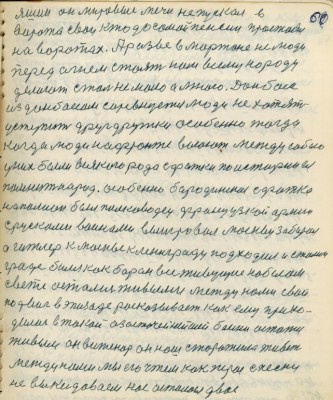 60
он мировые мечи не пускал в
ворота свои кто до самой пенсии простоял
на воротах. А разве в мартене не люди
перед огнем стоят нам всему народу
делают стал не мало а много. Донбасс
из донбасом соревнуются люди не хотят
уступить друг дружки особенно тогда
когда люди на фронте воюют между собою
у них были всякого рода сражки по истории
помнит народ. особенно бородинская сражка
наполион был полководец французской армии
с рускими воинами выигровал москву забирал
а гитлер к москве к ленграду подходил и сталин
граде были как баран все живущие на белом
свете остались живыми между нами свой
подвиг в эпизоде росказывает как ему прихо-
дилось в такой ожесточейшей бойни остаться
живым он виженар он наш сторожила живет
между нами мы его чтем как героя с песни
не выкидоваем нас остались двое